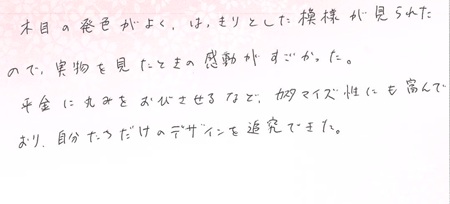 木目の発色がよく、はっきりとした模様が見られた
ので、実物を見たときの感動がすごかった。
平金に丸みをおびさせるなど、カスタマイズ性にも富んで
おり、自分たちだけのデザインを追究できた。